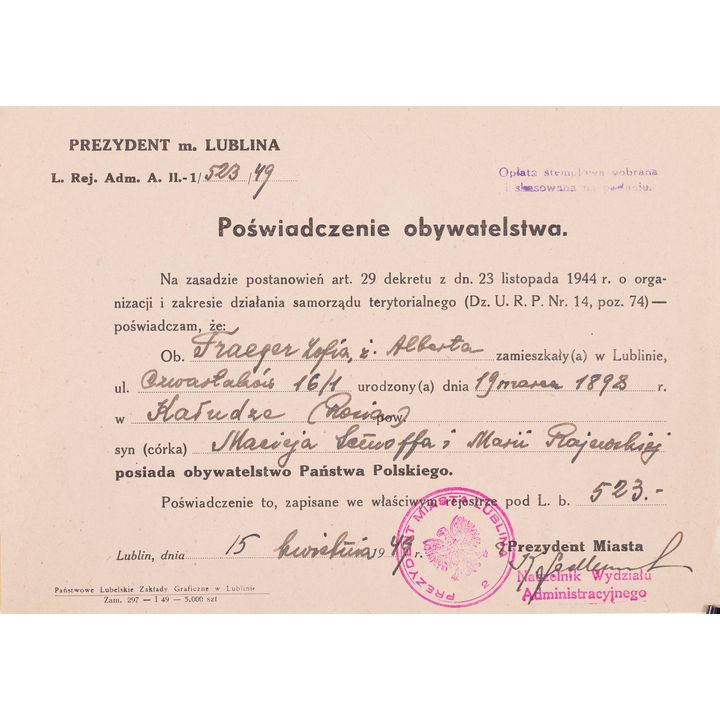 PREZYDENT m. LUBLINA
L. Rej. Adm. A. II.-1/523/49
Opłata stemplowa pobrana
i skasowana na podaniu.
Poświadczenie obywatelstwa.
Na zasadzie postanowień art. 29 dekretu z dn. 23 listopada 1944 r. o orga-
nizacji i zakresie działania samorządu terytorialnego (Dz. U. R. P. Nr. 14, poz. 74) —
poświadczam, że:
Ob. Traeger Zofia, ż. Alberta zamieszkały(a) w Lublinie,
ul. Czwartaków 16/1 urodzony(a) dnia 19 marca 1893 r.
w Kałudze (Rosja) pow.
syn (córka) Macieja i Marii Rajewskiej
posiada obywatelstwo Państwa Polskiego.
Poświadczenie to, zapisane we właściwym rejestrze pod L. b. 523.-
Lublin, dnia 15 kwietnia 1949 r.
PREZYDENT MIASTA LUBLINA
2
Prezydent Miasta
Naczelnik Wydziału
Administracyjnego
Państwowe Lubelskie Zakłady Graficzne w Lublinie
Zam. 297 — I 49 — 5.000 szt